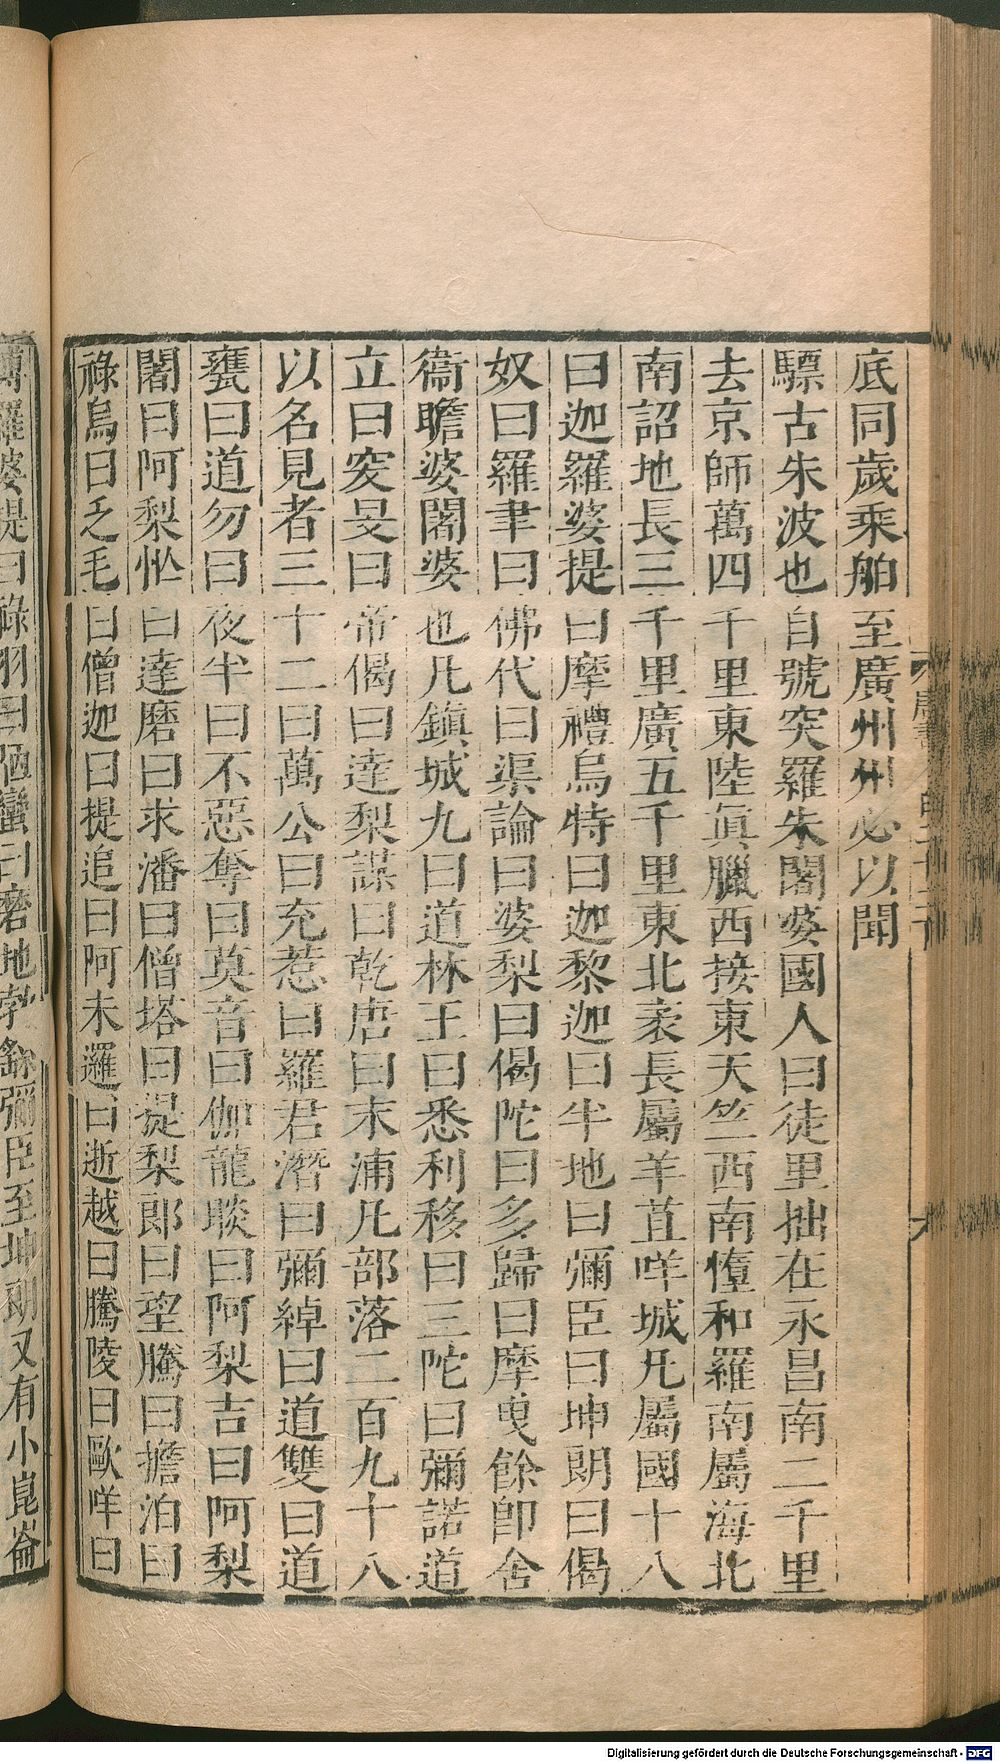 底同歲乘舶至廣州州必以聞
驃古朱波也自號突羅朱闍婆國人曰徒里拙在永昌南二千里
去京師萬四千里東陸真臘西接東天竺西南墮和羅南屬海北
南詔地長三千里廣五千里東北袤長屬羊苴咩城凡屬國十八
曰迦羅婆提曰摩禮烏特曰迦黎迦曰半地曰彌臣曰坤朗曰偈
奴曰羅聿曰佛代曰渠論曰婆梨曰偈陀曰多歸曰摩曳餘即舍
衞瞻婆闍婆也凡鎮城九曰道林王曰悉利移曰三陀曰彌諾道
立曰突旻曰帝偈曰達梨謀曰乾唐曰末浦凡部落二百九十八
以名見者三十二曰萬公曰充惹曰羅君潛曰彌綽曰道雙曰道
甕曰道勿曰夜半曰不惡奪曰莫音曰伽龍睒曰阿梨吉曰阿梨
闍曰阿梨忙曰達磨曰求潘曰僧塔曰提梨郎曰望騰曰擔泊曰
祿烏曰乏毛曰僧迦曰提追曰阿末邏曰逝越曰騰陵曰歐咩曰
羅婆提曰祿羽曰陋蠻曰磨地勃 彌臣至坤朗又有小崑崙
Digitalisierung gefördert durch die Deutsche Forschungsgemeinschaft - DFG